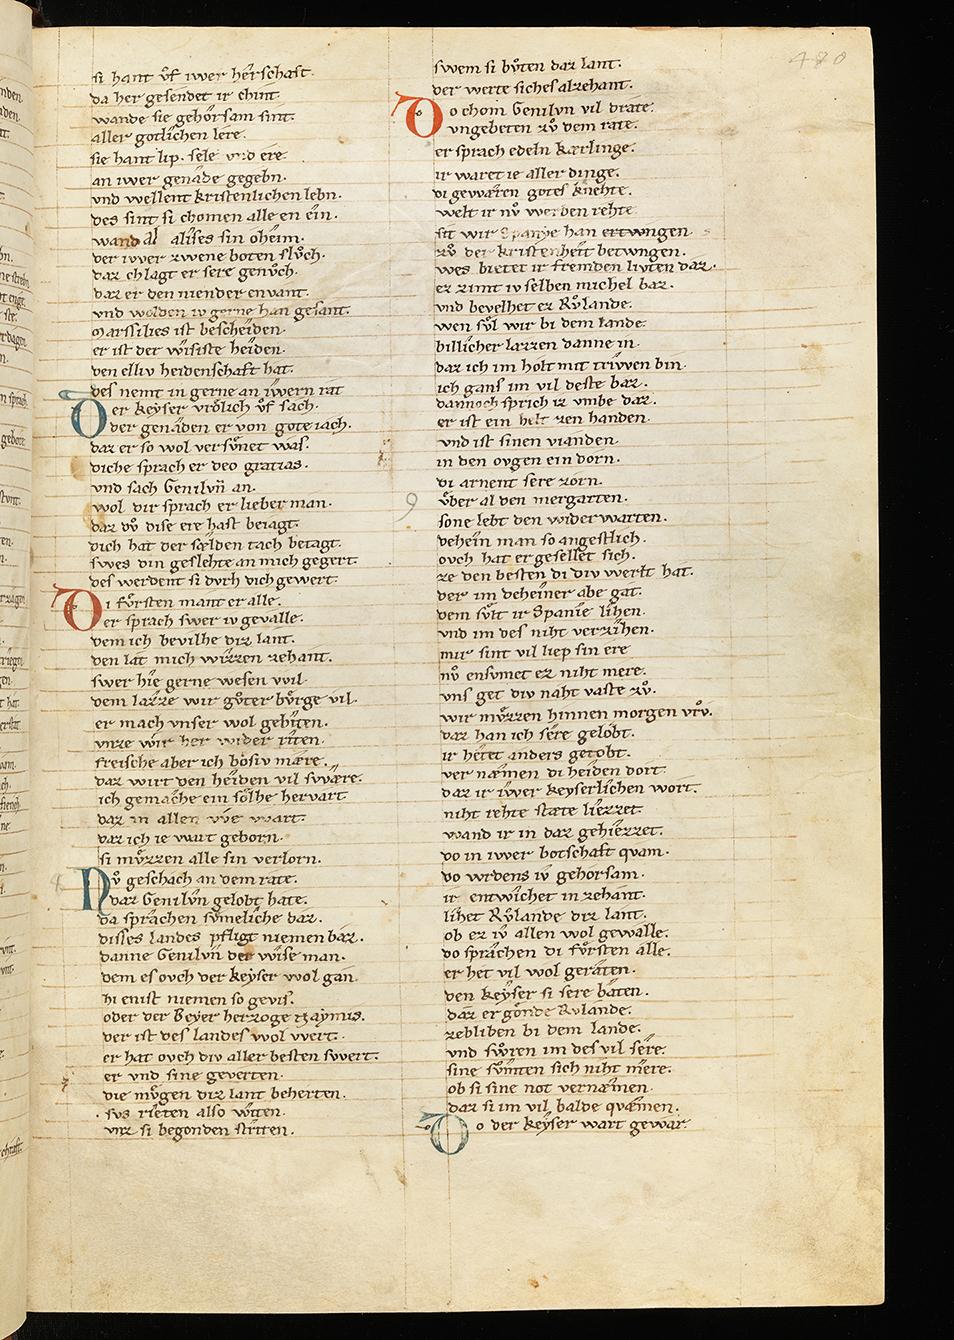 si hant vͦf iwer herschaft.
da her gesendet ir chint.
wande sie gehorsam sint.
aller gotlichen lere.
sie hant lip. sele vnd ere
an iwer genade gegebn.
vnd wellent kristenlichen lebn.
des sint si chomen alle en ein.
wand al alises sin oheim.
der iwer zwene boten slvͦch.
daz chlagt er sere genvͦch.
daz er den niender envant.
vnd wolden iv gerne han gesant.
Marssilies ist bescheiden.
er ist der wisiste heiden.
den elliv heidenschaft hat.
des nemt in gerne an iwern rat
Der keyser vrolich vͦf sach.
der genaden er von gote iach.
daz er so wol versvͦnet was.
diche sprach er deo gratias.
vnd sach Genilvn an.
wol dir sprach er lieber man.
daz dv dise ere hast beiagt.
dich hat der sælden tach betagt.
swes din geslehte an mich gegert.
des werdent si dvrh dich gewert.
Di fvͦrsten mant er alle.
er sprach swer iv gevalle.
dem ich bevilhe diz lant.
den lat mich wizzen zehant.
swer hie gerne wesen wil.
dem lazze wir gvͦter bvͦrge vil.
er mach vnser wol gebiten.
vnze wir her wider riten.
freische aber ich bosiv mære.
daz wirt den heiden vil swære.
ich gemache ein solhe hervart
daz in allen we wart.
daz ich ie wart geborn.
si mvͦzzen alle sin verlorn.
Nv geschach an dem rate.
daz Genilvn gelobt hate.
da sprachen svmeliche daz.
disses landes pfligt niemen baz.
danne Genilvn der wise man.
dem es ovch der keyser wol gan.
hi enist niemen so gevis.
oder der Beyer herzoge Naymis.
der ist des landes wol wert.
er hat ovch div aller besten swert.
er vnd sine geverten.
die mvͦgen diz lant beherten.
svs rieten also witen.
vnz si begonden striten.
swem si bvͦten daz lant.
der werte siches alzehant.
Do chom Genilvn vil drate.
vngebeten zvͦ dem rate.
er sprach edeln kærlinge.
ir waret ie aller dinge.
di gewæren gotes knehte.
welt ir nv werden rehte
sit wir Spanye han ertwngen.
zvͦ der kristenheit betwngen.
wes bietet ir fremden livten daz.
ez zimt iv selben michel baz.
vnd bevelhet ez Rvͦlande.
wen svͦl wir bi dem lande.
billicher lazzen danne in.
daz ich im holt mit triwen bin.
ich gans im vil deste baz.
dannoch sprich iz vmbe daz.
er ist ein helt zen handen.
vnd ist sinen vianden
in den ovgen ein dorn.
di arnent sere zorn.
vͦber al den mergarten.
sone lebt den widerwarten.
dehein man so angestlich.
ovch hat er gesellet sich.
ze den besten di div werlt hat.
der im deheiner abe gat.
dem svͦlt ir Spanie lihen.
vnd im des niht verzihen.
mir sint vil liep sin ere
nv ensvmet ez niht mere.
vns get div naht vaste zvͦ.
wir mvͦzzen hinnen morgen vrvͦ.
daz han ich sere gelobt.
ir hetet anders getobt.
vernæmen di heiden dort
daz ir iwer keyserlichen wort.
niht rehte stæte liezzet.
wand ir in daz gehiezzet.
do in iwer botschaft qvam.
do wrdens iv gehorsam.
ir entwichet in zehant.
lihet Rvlande diz lant.
ob ez iv allen wol gevalle.
do sprachen di fvͦrsten alle.
er het vil wol geraten.
den keyser si sere baten.
daz er gonde Rvlande.
zebliben bi dem lande.
vnd swͦren im des vil sere.
sine svmten sich niht mere.
ob si sine not vernæmen.
daz si im vil balde qvæmen.
Do der keyser wart gewar